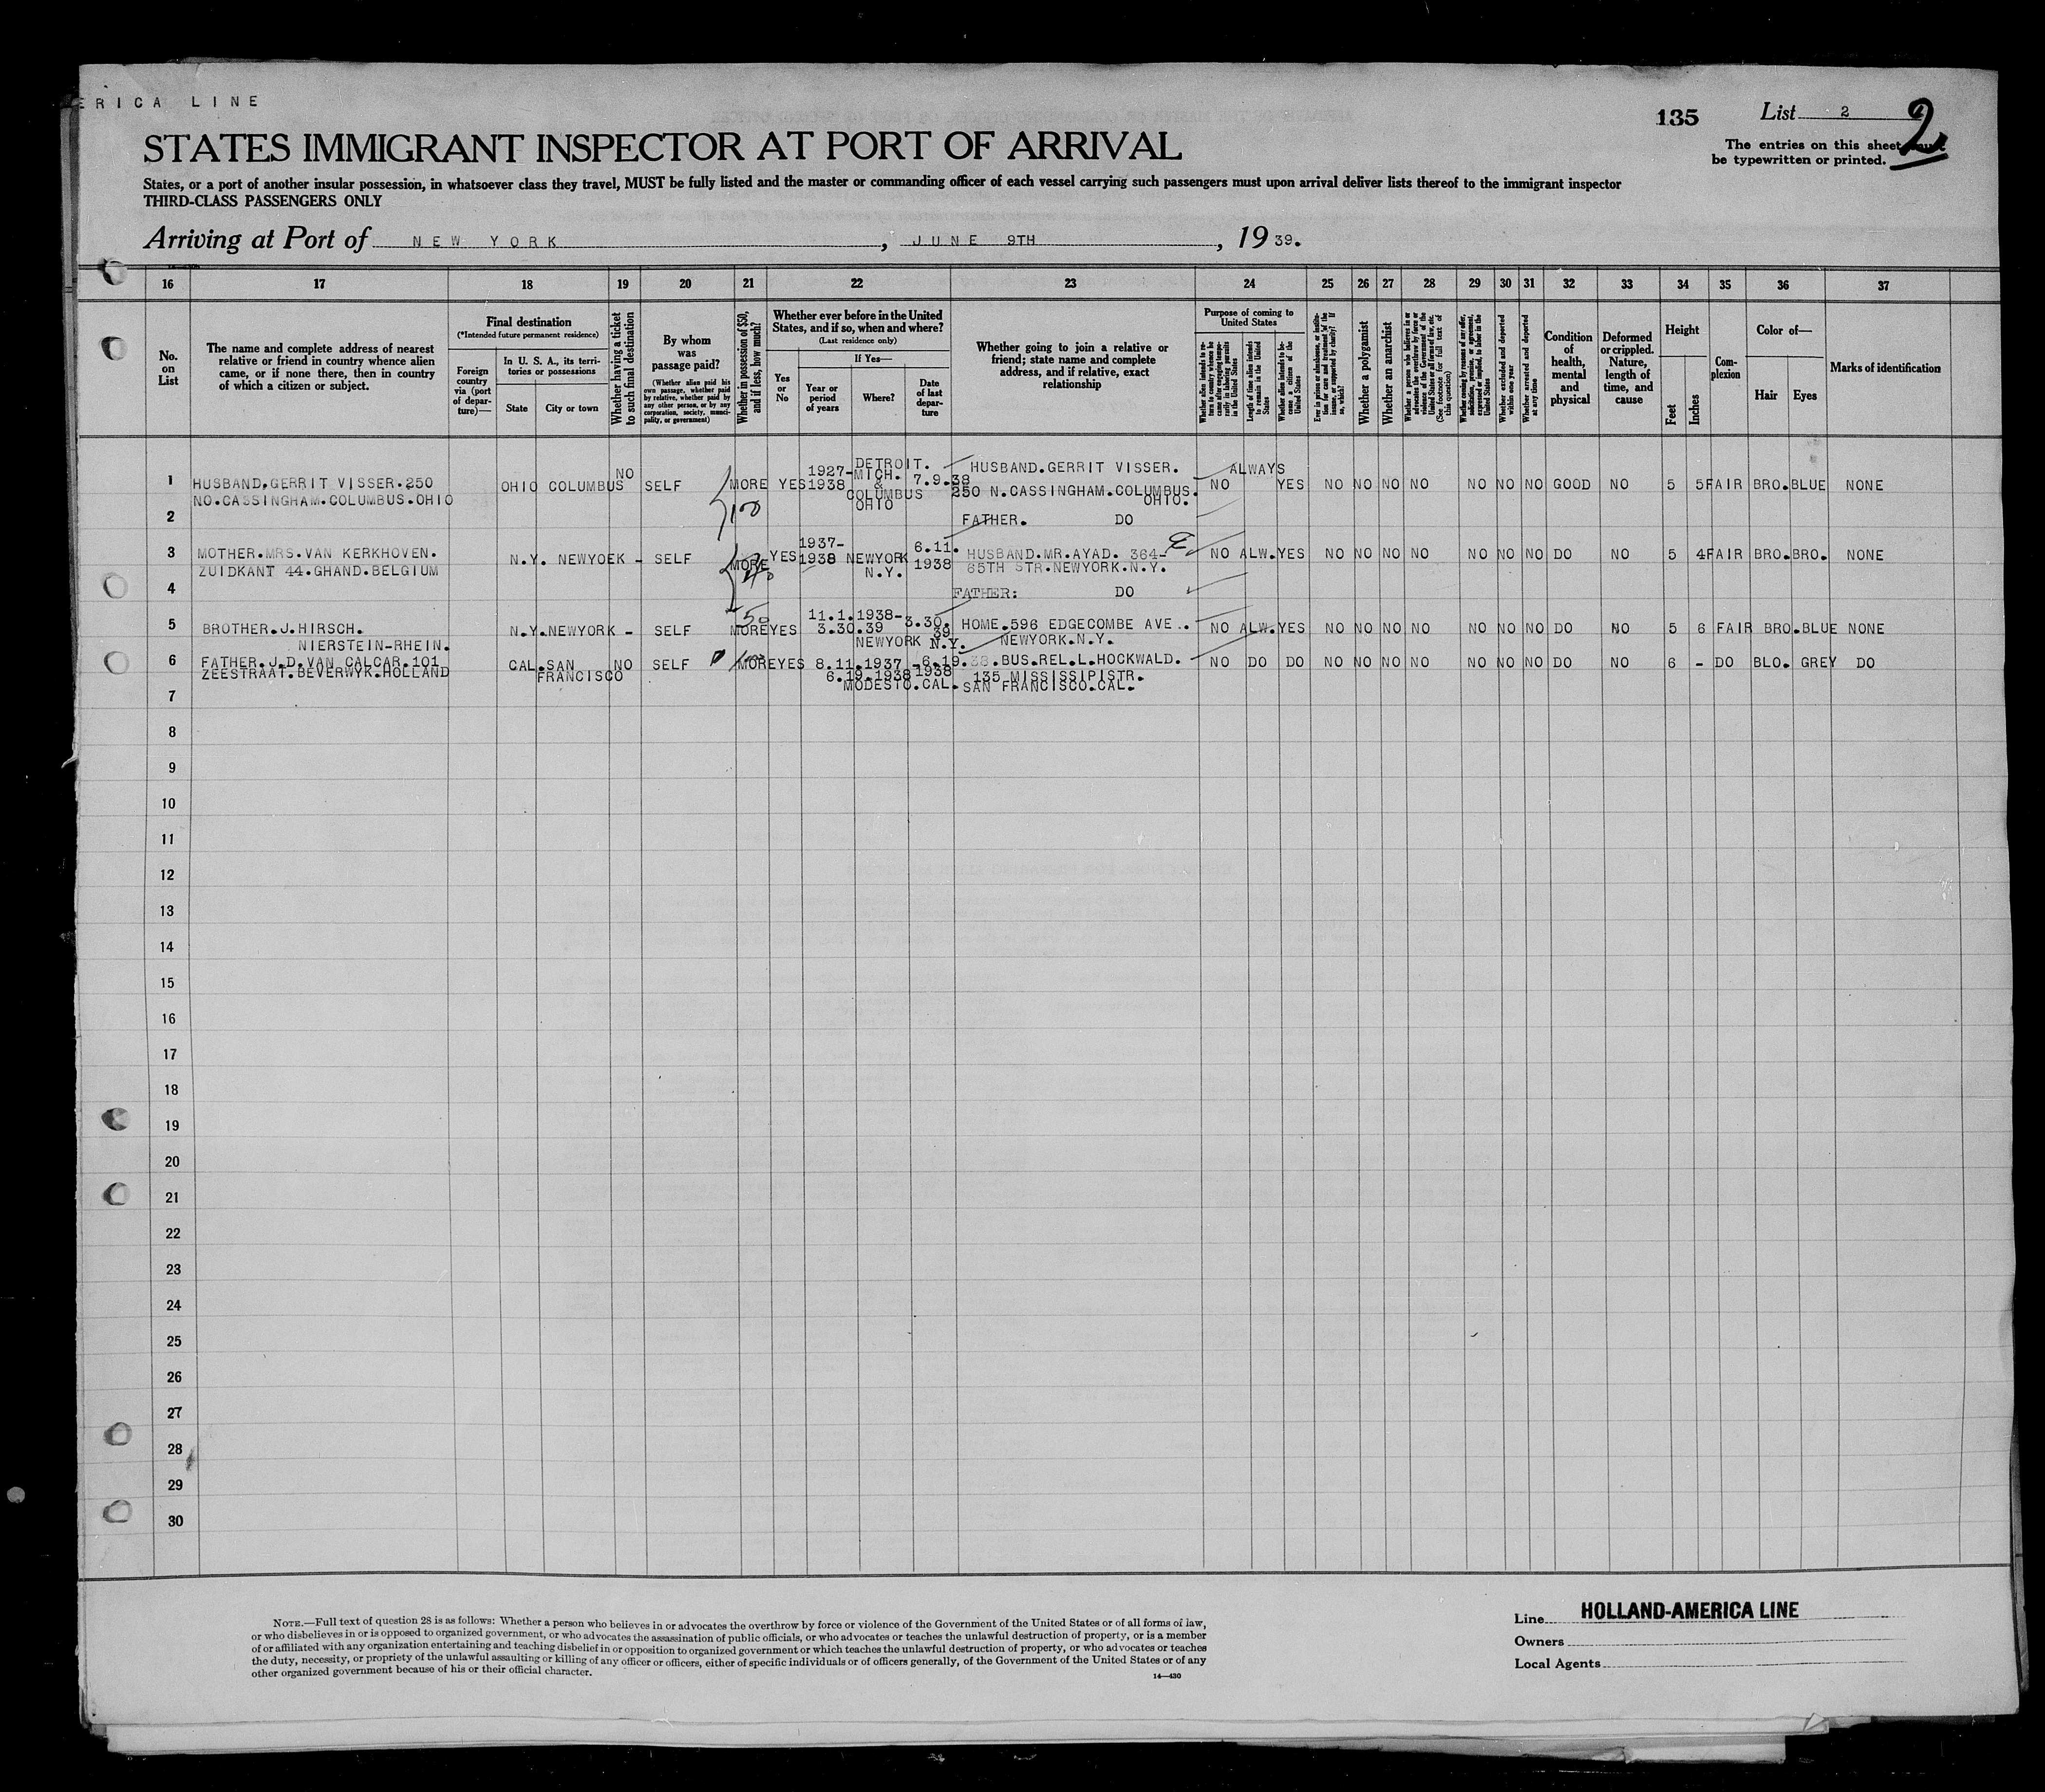 ERICA LINE
135 List 2 2
STATES IMMIGRANT INSPECTOR AT PORT OF ARRIVAL
The entries on this sheet must
be typewritten or printed.
States, or a port of another insular possession, in whatsoever class they travel, MUST be fully listed and the master or commanding officer of each vessel carrying such passengers must upon arrival deliver lists thereof to the immigrant inspector
THIRD-CLASS PASSENGERS ONLY
Arriving at Port of NEW YORK, JUNE 9TH, 1939.
16 17 18 19 20 21 22 23 24 25 26 27 28 29 30 31 32 33 34 35 36 37
No.
on
List
The name and complete address of nearest
relative or friend in country whence alien
came, or if none there, then in country
of which a citizen or subject.
Final destination
(*Intended future permanent residence)
Foreign
country
via (port
of depar-
ture)—
In U. S. A., its terri-
tories or possessions
State City or town
Whether having a ticket
to such final destination
By whom
was
passage paid?
(Whether alien paid his
own passage, whether paid
by relative, whether paid by
any other person, or by any
corporation, society, munici-
pality, or government)
Whether in possession of $50,
and if less, how much?
Whether ever before in the United
States, and if so, when and where?
(Last residence only)
Yes
or
No
If Yes—
Year or
period
of years
Where?
Date
of last
depar-
ture
Whether going to join a relative or
friend; state name and complete
address, and if relative, exact
relationship
Purpose of coming to
United States
Whether alien intends to re-
turn to country whence he
came after engaging tempo-
rarily in laboring pursuits
in the United States
Length of time alien intends
to remain in the United
States
Whether alien intends to be-
come a citizen of the
United States
Ever in prison or almshouse, or institu-
tion for care and treatment of the
insane, or supported by charity? If
so, which?
Whether a polygamist
Whether an anarchist
Whether a person who believes in or
advocates the overthrow by force or
violence of the Government of the
United States or all forms of law, etc.
(See footnote for full text of
this question)
Whether coming by reason of any offer,
solicitation, promise, or agreement,
expressed or implied, to labor in the
United States
Whether excluded and deported
within one year
Whether arrested and deported
at any time
Condition
of
health,
mental
and
physical
Deformed
or crippled.
Nature,
length of
time, and
cause
Height
Feet Inches
Com-
plexion
Color of—
Hair Eyes
Marks of identification
1 HUSBAND.GERRIT VISSER.250
NO.CASSINGHAM.COLUMBUS.OHIO
OHIO COLUMBUS NO SELF MORE 100 YES
1927-
1938
DETROIT.
MICH.
&
COLUMBUS
OHIO
7.9.38
HUSBAND.GERRIT VISSER.
250 N.CASSINGHAM.COLUMBUS.
OHIO.
NO ALWAYS YES NO NO NO NO NO NO NO GOOD NO 5 5 FAIR BRO. BLUE NONE
2 FATHER. DO
3 MOTHER.MRS.VAN KERKHOVEN.
ZUIDKANT 44.GHAND.BELGIUM
N.Y. NEWYOEK - SELF MORE YES
1937-
1938 NEWYORK
N.Y.
6.11.
1938
HUSBAND.MR.AYAD. 364- E
65TH STR.NEWYORK.N.Y.
NO ALW. YES NO NO NO NO NO NO NO DO NO 5 4 FAIR BRO. BRO. NONE
4 FATHER: DO
5 BROTHER.J.HIRSCH.
NIERSTEIN-RHEIN.
N.Y. NEWYORK - SELF 50 MORE YES
11.1.1938-
3.30.39
NEWYORK N.Y.
3.30.
39.
HOME.596 EDGECOMBE AVE..
NEWYORK.N.Y.
NO ALW. YES NO NO NO NO NO NO NO DO NO 5 6 FAIR BRO. BLUE NONE
6 FATHER.J.D.VAN CALCAR.101
ZEESTRAAT.BEVERWYK.HOLLAND
CAL. SAN
FRANCISCO
NO SELF MORE YES 8.11.1937 -
6.19.1938
MODESTO.CAL.
6.19.38.
1938
BUS.REL.L.HOCKWALD.
135 MISSISSIPISTR.
SAN FRANCISCO.CAL.
NO DO DO NO NO NO NO NO NO NO DO NO 6 - DO BLO. GREY DO
7
8
9
10
11
12
13
14
15
16
17
18
19
20
21
22
23
24
25
26
27
28
29
30
NOTE.—Full text of question 28 is as follows: Whether a person who believes in or advocates the overthrow by force or violence of the Government of the United States or of all forms of law,
or who disbelieves in or is opposed to organized government, or who advocates the assassination of public officials, or who advocates or teaches the unlawful destruction of property, or is a member
of or affiliated with any organization entertaining and teaching disbelief in or opposition to organized government or which teaches the unlawful destruction of property, or who advocates or teaches
the duty, necessity, or propriety of the unlawful assaulting or killing of any officer or officers, either of specific individuals or of officers generally, of the Government of the United States or of any
other organized government because of his or their official character.
14—430
Line HOLLAND-AMERICA LINE
Owners
Local Agents